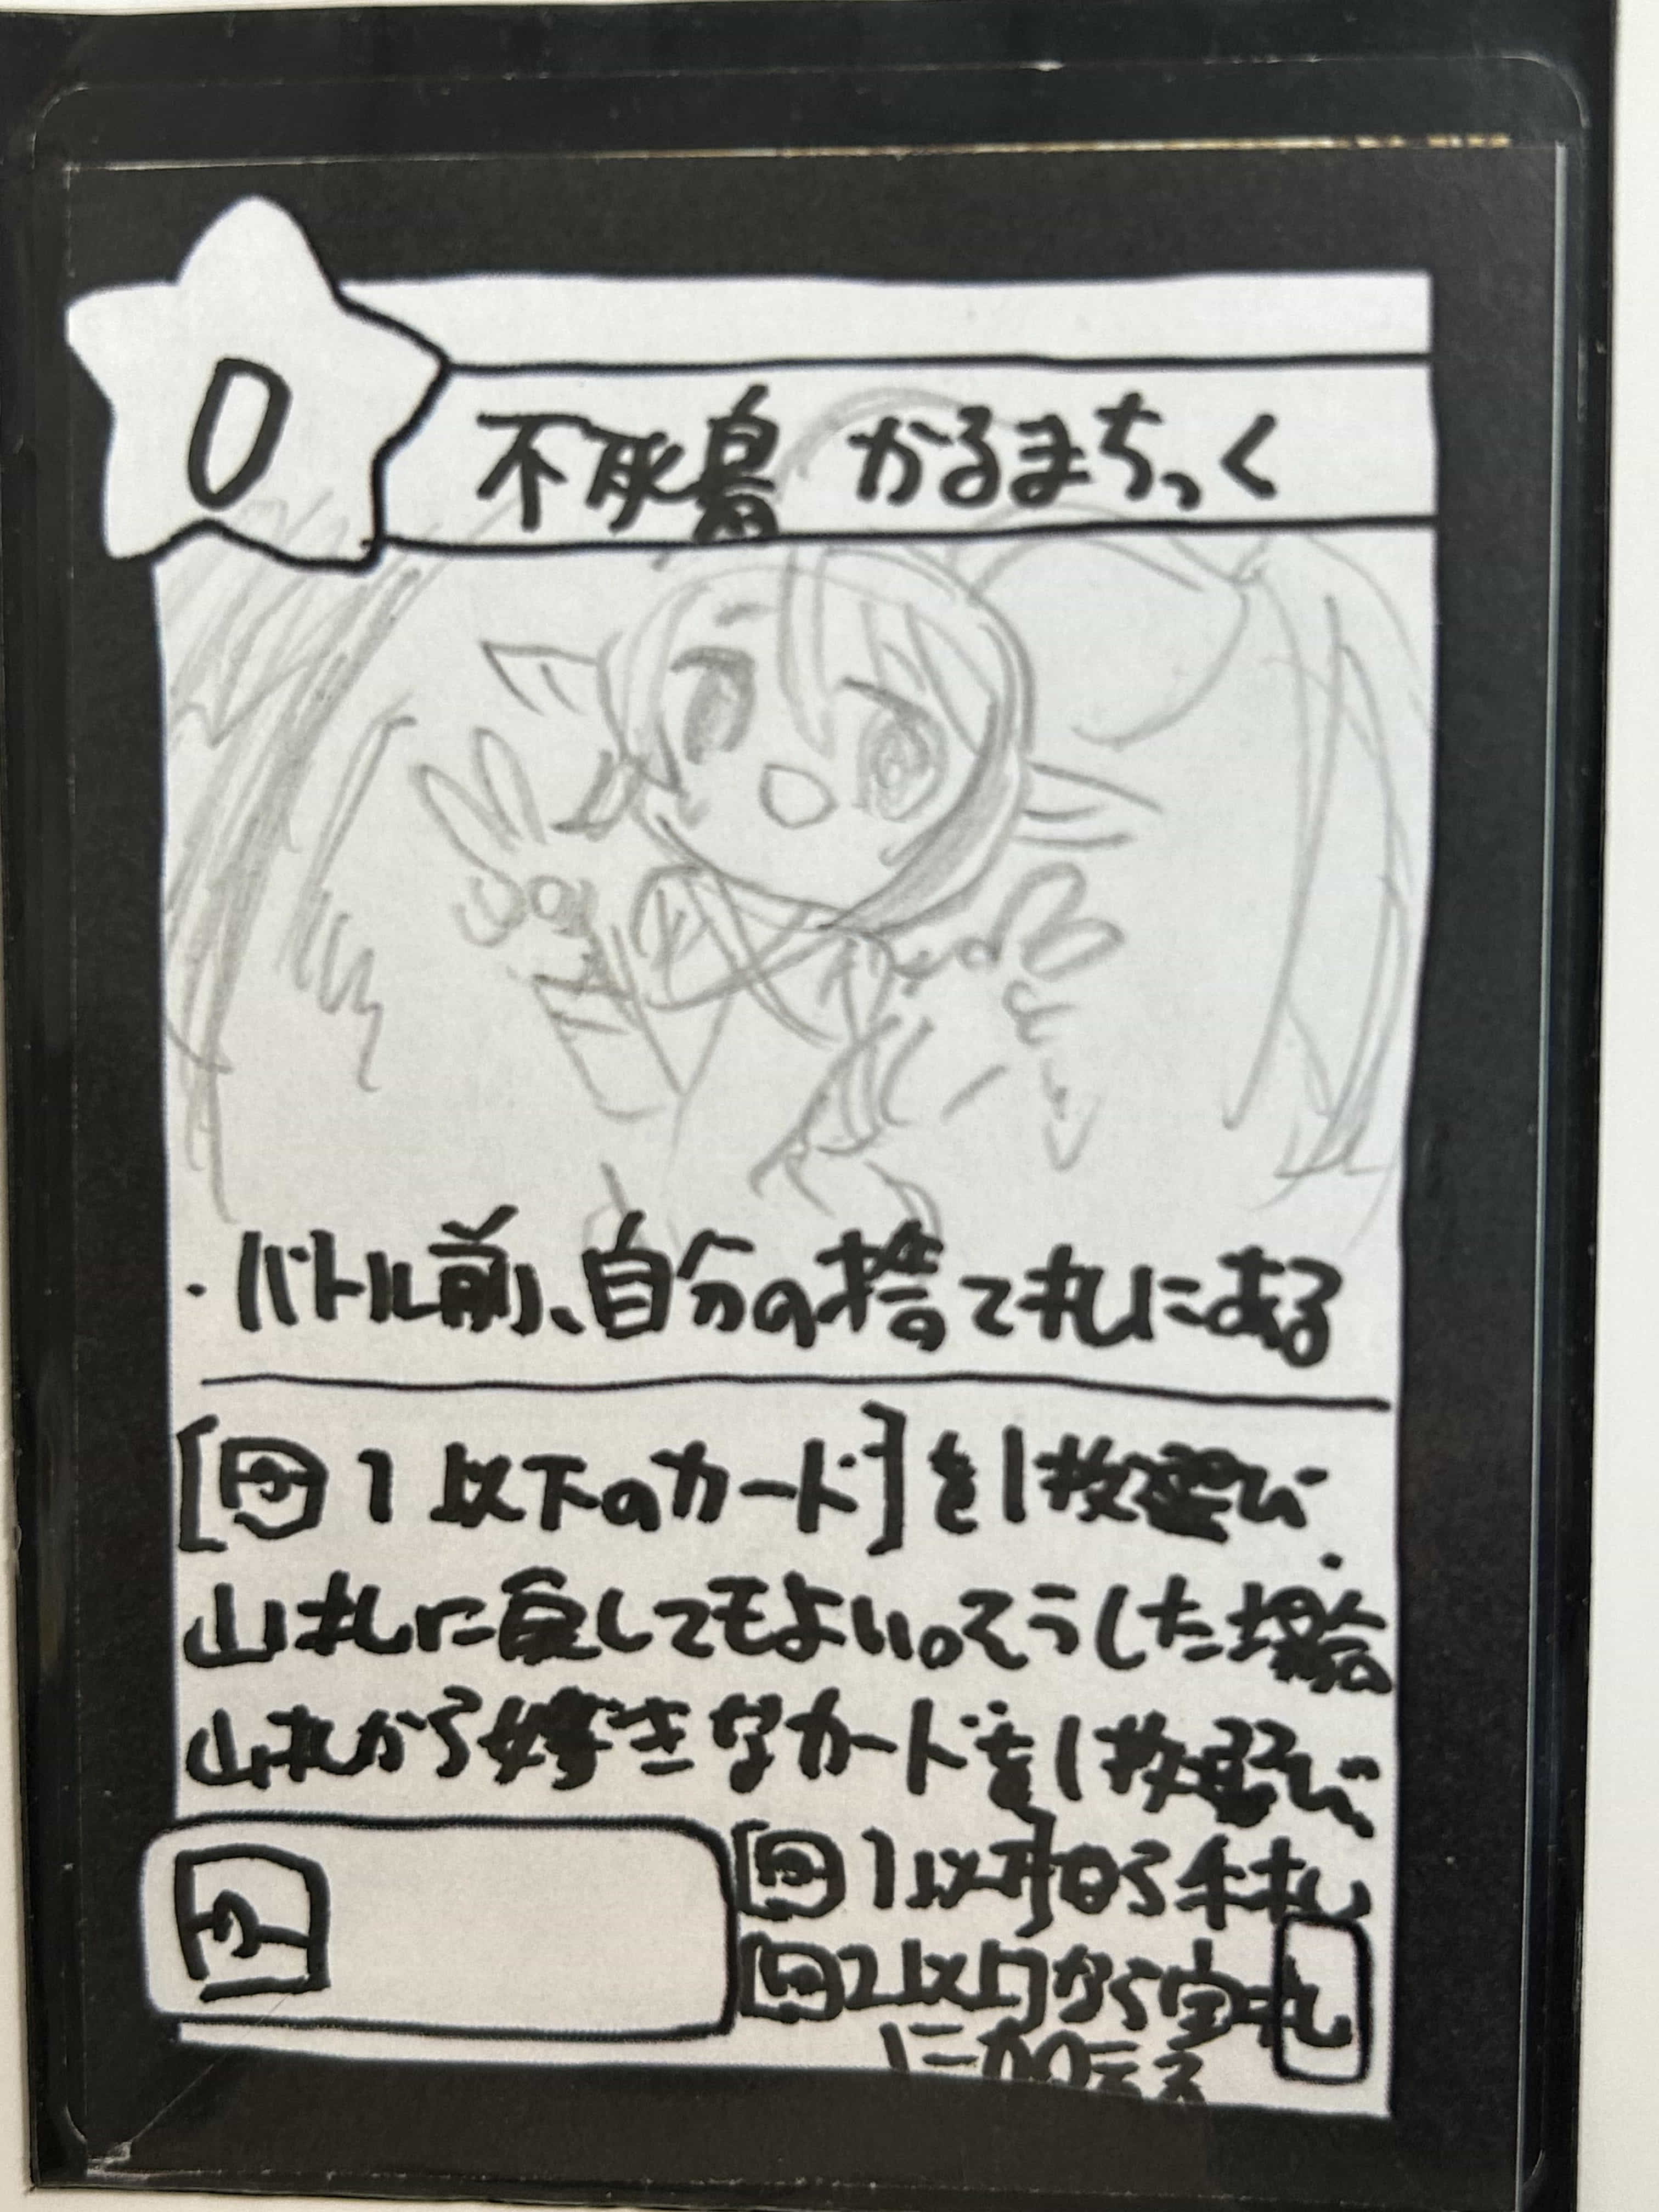 0
不死鳥 かるまちっく
・バトル前、自分の捨て札にある
[ワ 1 以下のカード]を1枚選び
山札に戻してもよい。そうした場合
山札から好きなカードを1枚選び
[ワ 1以下]なら手札
[ワ 2以上]なら宝札
に加える
ワ